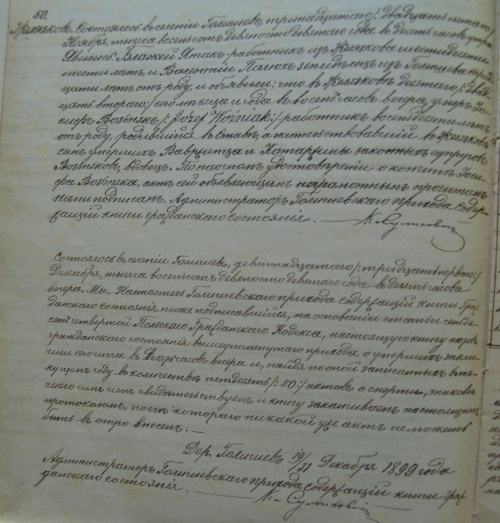 50.
Желязковъ. Состоялось въ селеніи Голишевѣ, тринадцатаго /: двадцать пятаго :/
Ноября, тысяча восемьсотъ девяносто девятаго года въ десять часовъ утра.
Явились работникъ изъ Желязкова шестидесяти
шести лѣтъ и Валентій земледѣлецъ изъ Голишева
лѣтъ отъ роду, и объявили, что въ Желязковѣ десятаго /: двад-
цать втораго :/ сего мѣсяца и года въ восемь часовъ вечера умеръ Іо-
сифъ Возьнякъ, /: Józef Woźniak :/ работникъ восьмидесяти лѣтъ
отъ роду, родившійся въ Ставѣ, а жительствовавшій въ Желязковѣ
сынъ умершихъ Вавринца и Катаррины законныхъ супруговъ
Возьняковъ, вдовецъ. По наглядномъ удостовѣреніи о кончинѣ Іоси-
фа Возьняка, актъ сей объявляющимъ неграмотнымъ прочитанъ
нами подписанъ. Администраторъ Голишевскаго прихода содер-
жащій книги гражданскаго состоянія.
Состоялось въ селеніи Голишевѣ, девятнадцатаго /: тридцать перваго :/
Декабря, тысяча восемьсотъ девяносто девятаго года въ десять часовъ
вечера, Мы, Настоятель Голишевскаго прихода содержащій книги Граж-
данскаго состоянія ниже подписавшійся, на основаніи статьи сто де-
сятой четвертой Польскаго Гражданскаго Кодекса, настоящую книгу актовъ
гражданскаго состоянія вышеупомянутаго прихода о умершихъ заклю-
чили сего числа въ часовъ вечера и, найдя по оной записанныхъ въ те-
кущемъ году въ количествѣ пятьдесятъ /: 50 :/ актовъ о смерти, таковое
число симъ свидѣтельствуемъ и книгу заканчиваемъ настоящимъ
протоколомъ, послѣ котораго никакой уже актъ не можетъ
быть въ оную внесенъ. —
Дер. Голишевъ 19/31 Декабря 1899 года
Администраторъ Голишевскаго прихода содержащій книги граж-
данскаго состоянія.